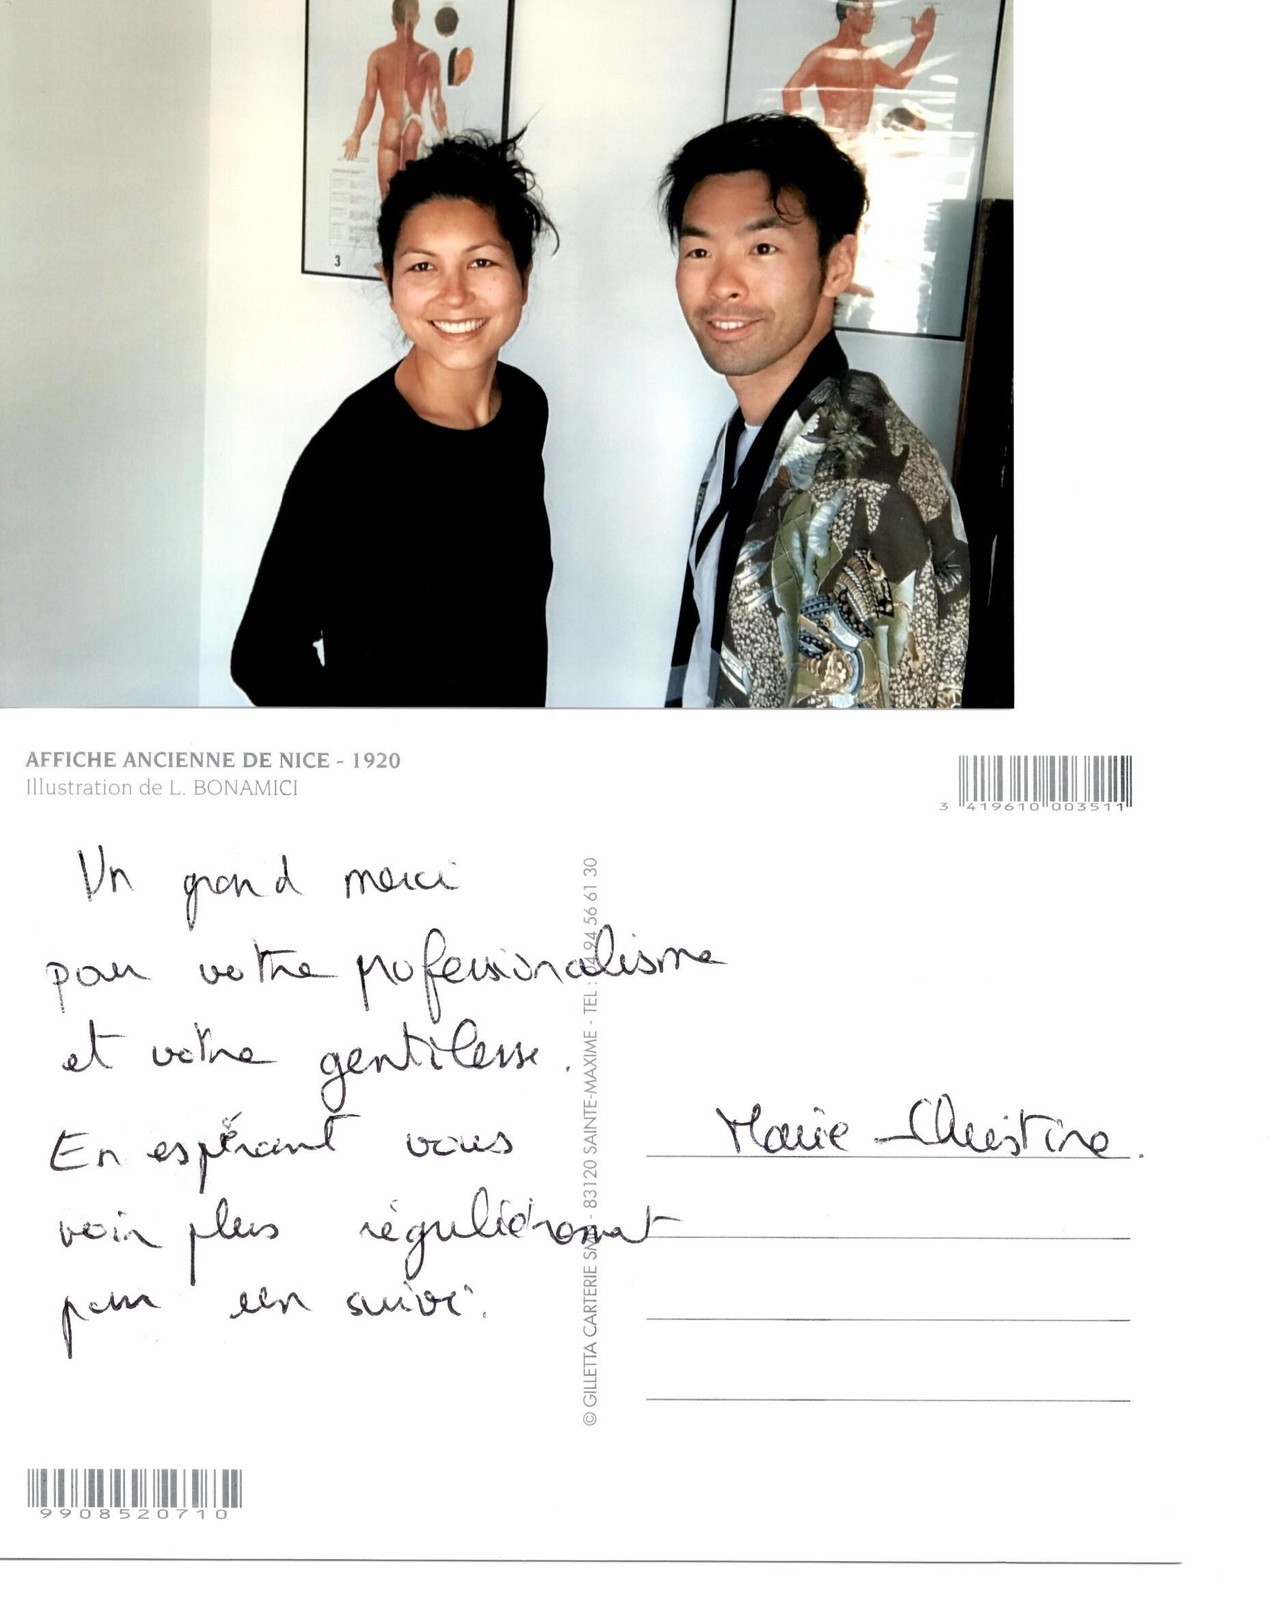 3
AFFICHE ANCIENNE DE NICE - 1920
Illustration de L. BONAMICI
3 419610 003511
Un grand merci
pour votre professionnalisme
et votre gentillesse.
En espérant vous
voir plus régulièrement
pour un suivi.
Marie-Christine.
© GILLETTA CARTERIE - 83120 SAINTE-MAXIME - TEL : 94 56 61 30
9908520710